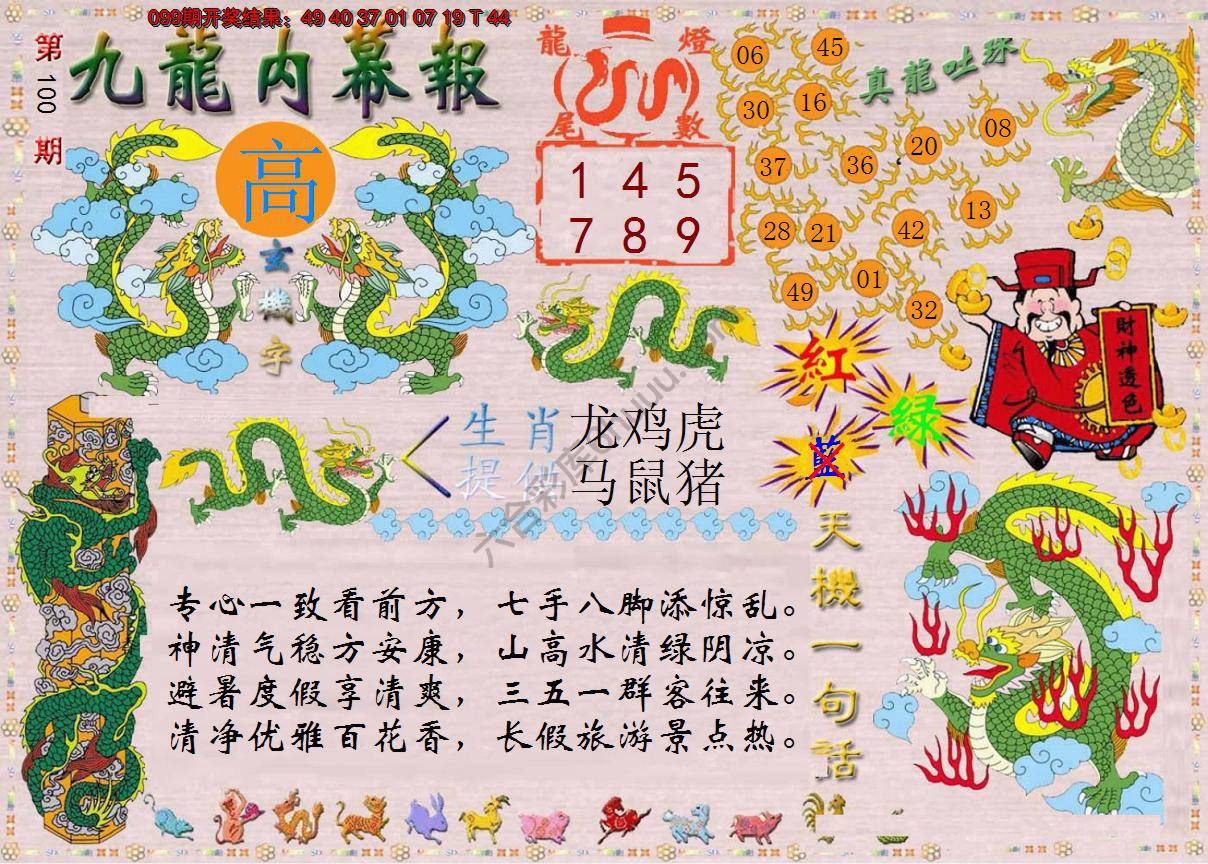 099期开奖结果：49 40 37 01 07 19 T 44
第100期
九龍内幕報
高
玄機字
龍燈尾數
1 4 5
7 8 9
真龍吐珠
06 45
30 16
37 36 20 08
28 21 42 13
49 01 32
財神透色
紅
綠
藍
生肖 龙鸡虎
提供 马鼠猪
天機一句話
专心一致看前方，七手八脚添惊乱。
神清气稳方安康，山高水清绿阴凉。
避暑度假享清爽，三五一群客往来。
清净优雅百花香，长假旅游景点热。